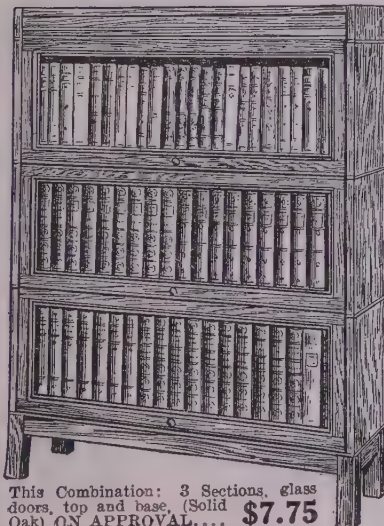 This Combination: 3 Sections, glass
doors, top and base, (Solid
Oak) ON APPROVAL.... $7.75